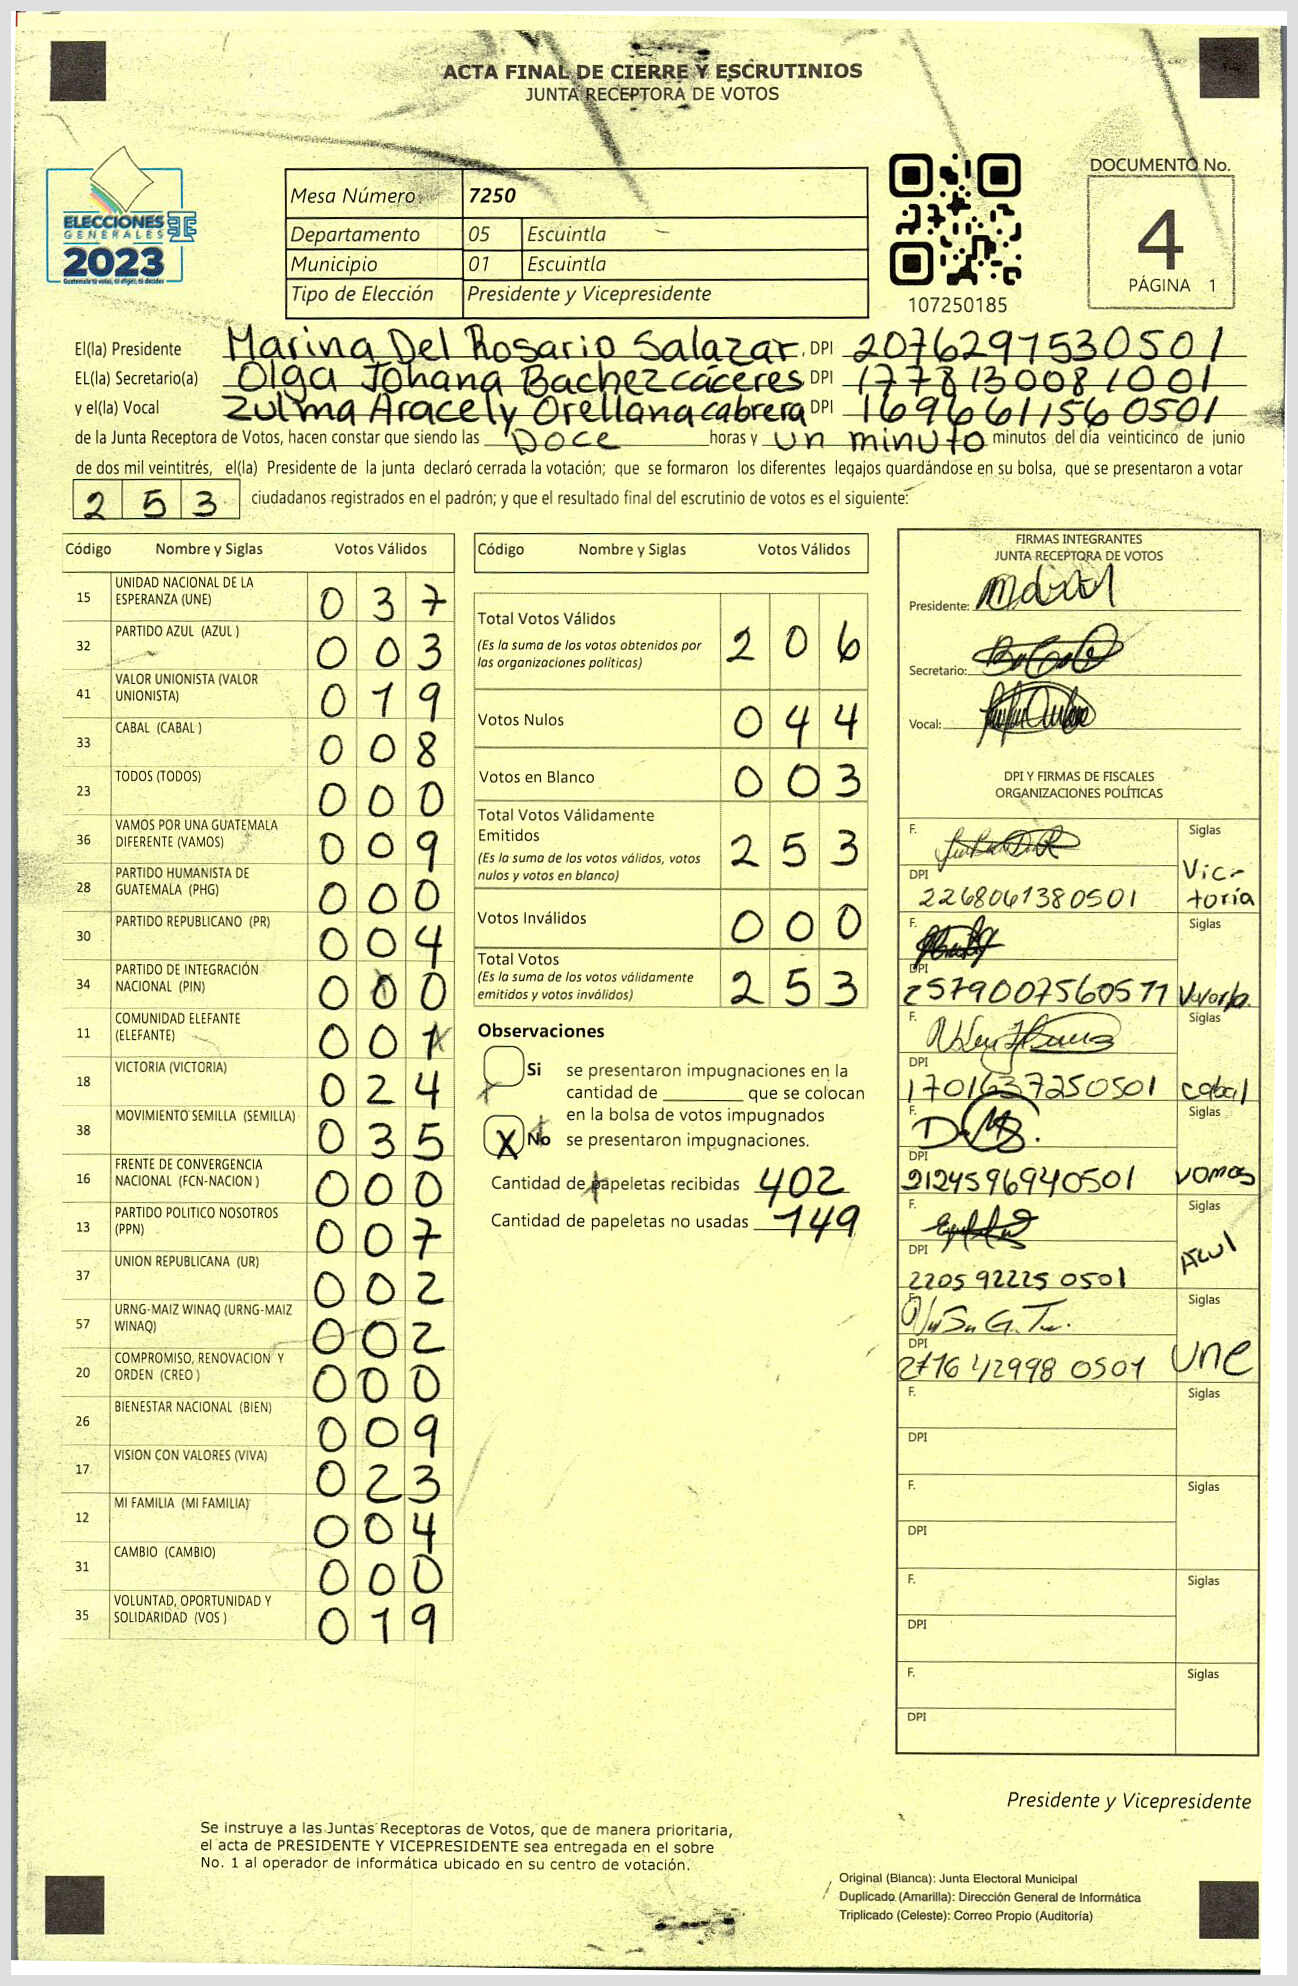 ACTA FINAL DE CIERRE Y ESCRUTINIOS
JUNTA RECEPTORA DE VOTOS
ELECCIONES
GENERALES
2023
Guatemala tú votas, tú eliges, tú decides
Mesa Número 7250
Departamento 05 Escuintla
Municipio 01 Escuintla
Tipo de Elección Presidente y Vicepresidente
107250185
DOCUMENTO No.
4
PÁGINA 1
El(la) Presidente Marina Del Rosario Salazar. DPI 2076297530501
EL(la) Secretario(a) Olga Johana Bachez cáceres DPI 1778130081001
y el(la) Vocal Zulma Aracely Orellana cabrera DPI 1696611560501
de la Junta Receptora de Votos, hacen constar que siendo las Doce horas y un minuto minutos del día veinticinco de junio
de dos mil veintitrés, el(la) Presidente de la junta declaró cerrada la votación; que se formaron los diferentes legajos guardándose en su bolsa, que se presentaron a votar
253 ciudadanos registrados en el padrón; y que el resultado final del escrutinio de votos es el siguiente:
Código Nombre y Siglas Votos Válidos
15 UNIDAD NACIONAL DE LA ESPERANZA (UNE) 037
32 PARTIDO AZUL (AZUL ) 003
41 VALOR UNIONISTA (VALOR UNIONISTA) 019
33 CABAL (CABAL ) 008
23 TODOS (TODOS) 000
36 VAMOS POR UNA GUATEMALA DIFERENTE (VAMOS) 009
28 PARTIDO HUMANISTA DE GUATEMALA (PHG) 000
30 PARTIDO REPUBLICANO (PR) 004
34 PARTIDO DE INTEGRACIÓN NACIONAL (PIN) 000
11 COMUNIDAD ELEFANTE (ELEFANTE) 001
18 VICTORIA (VICTORIA) 024
38 MOVIMIENTO SEMILLA (SEMILLA) 035
16 FRENTE DE CONVERGENCIA NACIONAL (FCN-NACION ) 000
13 PARTIDO POLITICO NOSOTROS (PPN) 007
37 UNION REPUBLICANA (UR) 002
57 URNG-MAIZ WINAQ (URNG-MAIZ WINAQ) 002
20 COMPROMISO, RENOVACION Y ORDEN (CREO ) 000
26 BIENESTAR NACIONAL (BIEN) 009
17 VISION CON VALORES (VIVA) 023
12 MI FAMILIA (MI FAMILIA) 004
31 CAMBIO (CAMBIO) 000
35 VOLUNTAD, OPORTUNIDAD Y SOLIDARIDAD (VOS ) 019
Código Nombre y Siglas Votos Válidos
Total Votos Válidos 206
(Es la suma de los votos obtenidos por
las organizaciones políticas)
Votos Nulos 044
Votos en Blanco 003
Total Votos Válidamente
Emitidos 253
(Es la suma de los votos válidos, votos
nulos y votos en blanco)
Votos Inválidos 000
Total Votos 253
(Es la suma de los votos válidamente
emitidos y votos inválidos)
Observaciones
Si se presentaron impugnaciones en la
cantidad de ________ que se colocan
en la bolsa de votos impugnados
X No se presentaron impugnaciones.
Cantidad de papeletas recibidas 402
Cantidad de papeletas no usadas 149
FIRMAS INTEGRANTES
JUNTA RECEPTORA DE VOTOS
Presidente:
Secretario:
Vocal:
DPI Y FIRMAS DE FISCALES
ORGANIZACIONES POLÍTICAS
F. Siglas
DPI Vic-
2268061380501 toria
F. Siglas
DPI
2579007560511
F. Siglas
DPI
1701637250501 cabal
F. Siglas
DPI
2124596940501 vamos
F. Siglas
DPI Azul
2205922250501
F. Siglas
DPI
2716429980501 une
F. Siglas
DPI
F. Siglas
DPI
F. Siglas
DPI
F. Siglas
DPI
Presidente y Vicepresidente
Se instruye a las Juntas Receptoras de Votos, que de manera prioritaria,
el acta de PRESIDENTE Y VICEPRESIDENTE sea entregada en el sobre
No. 1 al operador de informática ubicado en su centro de votación.
Original (Blanca): Junta Electoral Municipal
Duplicado (Amarilla): Dirección General de Informática
Triplicado (Celeste): Correo Propio (Auditoría)